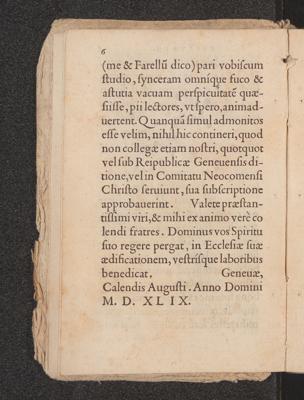 6
(me & Farellũ dico) pari vobiscum
studio, synceram omnique fuco &
astutia vacuam perspicuitatẽ quæ-
siisse, pii lectores, vt spero, animad-
uertent. Quanquã simul admonitos
esse velim, nihil hic contineri, quod
non collegæ etiam nostri, quotquot
vel sub Reipublicæ Geneuensis di-
tione, vel in Comitatu Neocomensi
Christo seruiunt, sua subscriptione
approbauerint. Valete præstan-
tissimi viri, & mihi ex animo verè co
lendi fratres. Dominus vos Spiritu
suo regere pergat, in Ecclesiæ suæ
ædificationem, vestrisque laboribus
benedicat. Geneuæ,
Calendis Augusti. Anno Domini
M. D. XLIX.